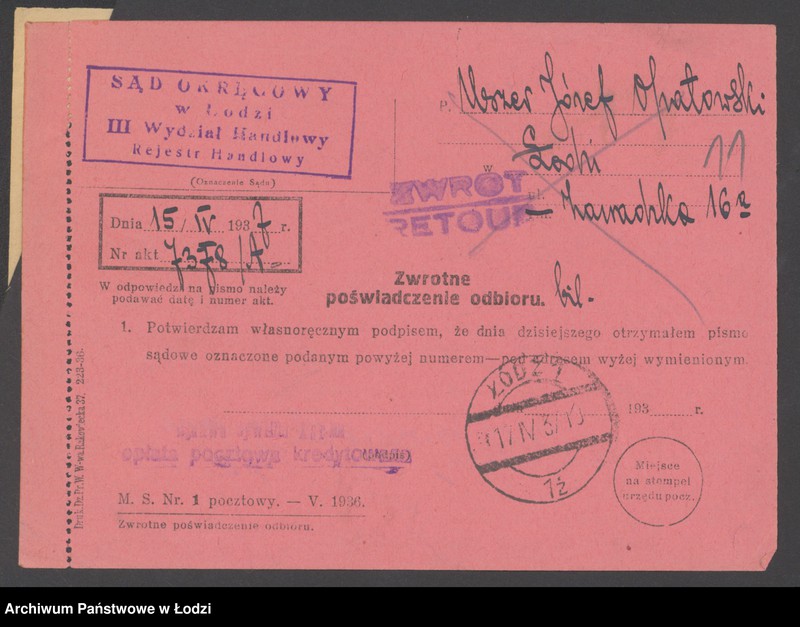 SĄD OKRĘGOWY
w Łodzi
III Wydział Handlowy
Rejestr Handlowy
(Oznaczenie Sądu)
P. Uszer Józef Opatowski
w Łodzi
11
pl. - Zawadzka 16a
ZWROT
RETOUR
Dnia 15/IV 1937 r.
Nr akt 7378/A.
W odpowiedzi na pismo należy
podawać datę i numer akt.
Zwrotne
poświadczenie odbioru. bil.
1. Potwierdzam własnoręcznym podpisem, że dnia dzisiejszego otrzymałem pismo
sądowe oznaczone podanym powyżej numerem—pod adresem wyżej wymienionym.
193 r.
ŁÓDŹ 1
17 IV 37 10
1ż
opłata pocztowa kredytowana
(podpis)
Miejsce
na stempel
urzędu pocz.
M. S. Nr. 1 pocztowy. — V. 1936.
Zwrotne poświadczenie odbioru.
Druk. Dz. Pr. W. W-wa Rakowiecka 37. 228-36.
Archiwum Państwowe w Łodzi